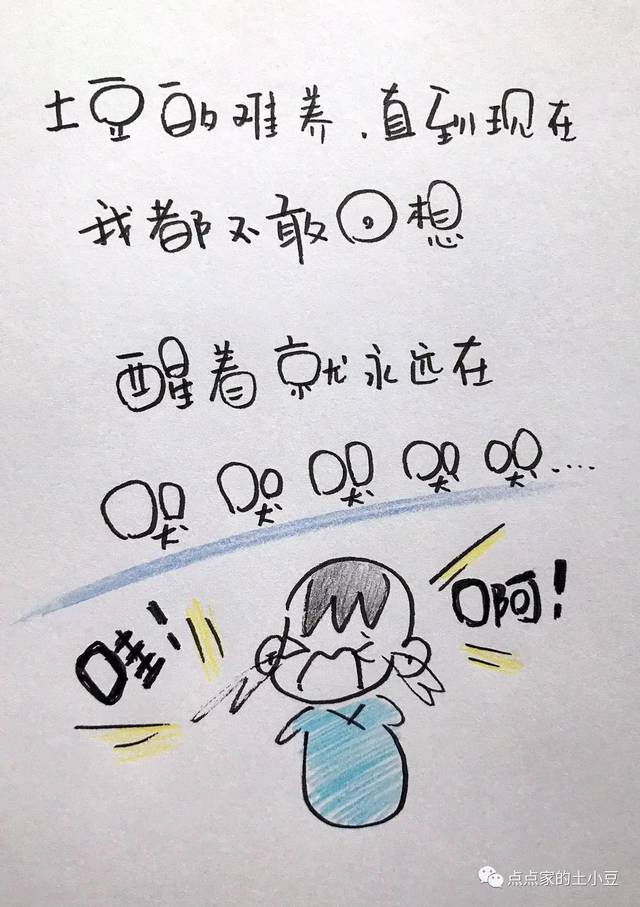 土豆的难养，直到现在
我都不敢回想
醒着就永远在
哭哭哭哭哭....
哇！
啊！
点点家的土小豆